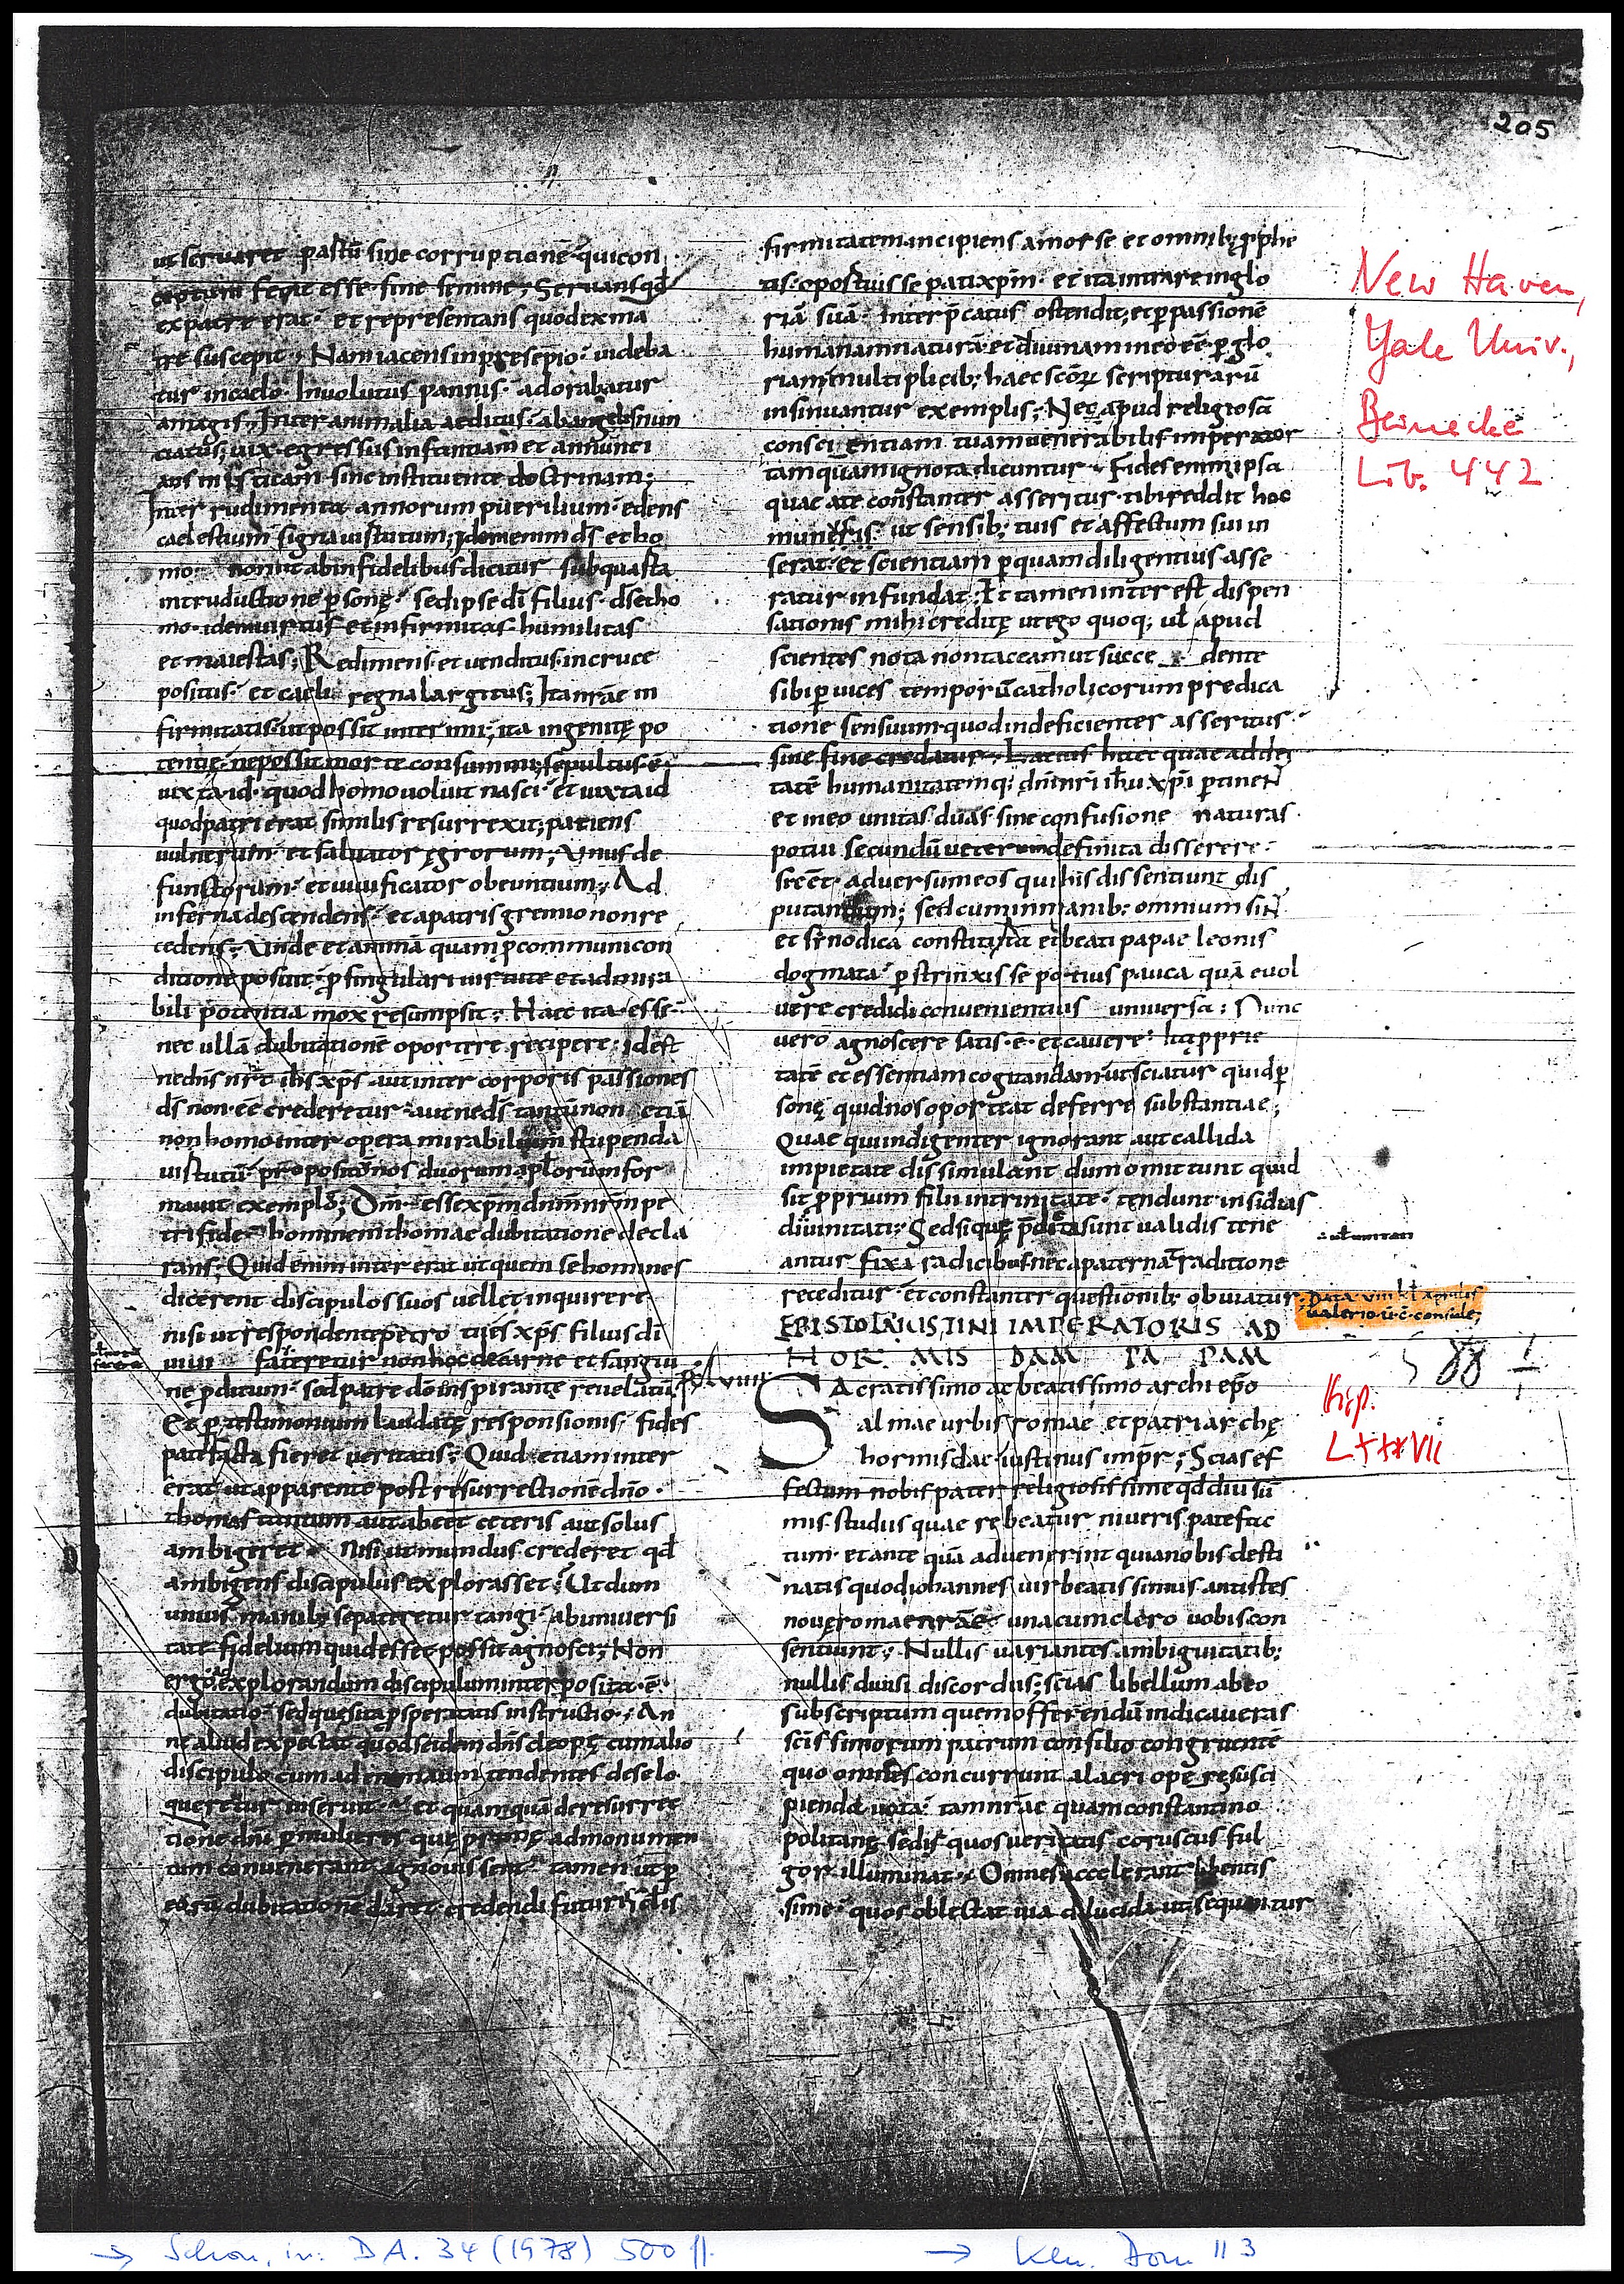 205
ut servaret partū sine corruptionē quicon
ceptum fecit esse sine semine; Servans qđ
ex patre erat et representans quod ex ma
tre suscepit; Nam iacens in presepio videba
tur in caelo Involutus pannis adorabatur
a magis; Inter animalia aeditus ab angelis nun
ciatus; vix egressus infantiam et annunci
ans misticam sine instituente doctrinam;
Inter rudimenta annorum puerilium edens
caelestium signa virtutum; Idem enim ds et ho
mo non ut ab infidelibus dicitur sub quarta
introductione psonę sed ipse di filius ds et ho
mo idem virtus et infirmitas humilitas
et maiestas; Redimens et venditus in cruce
positus et caeli regna largitus; Ita nrāe in
firmitatis ut possit interimi; ita ingenitę po
tentię ne possit morte consummi; sepultus ē
iuxta id quod homo voluit nasci et iuxta id
quod patri erat similis resurrexit; patiens
vulnerum et salvator ęgrorum; Unus de
functorum et vivificator obeuntium; Ad
inferna descendens et a patris gremio non re
cedens; Unde et animā quam p communi con
ditione posuit p singulari virtute et admira
bili potentia mox resumpsit; Haec ita esse
nec ullā dubitationē oportere recipere idest
ne dns nr ihs xps aut inter corporis passiones
ds non eē crederetur aut ne ds tantū non etiā
non homo inter opera mirabilium stupenda
virtutū propositō nos duorum aplorum for
mavit exemplo; Dm esse xpm dnm nrm pe
tri fide hominem thomae dubitatione decla
rans; Quid enim inter erat ut quem se homines
dicerent discipulos suos vellet inquirere
nisi ut respondente petro tu es xps filius di
vivi fateretur non hoc de carne et sangui
ne pditum sed patre dō inspirante revelatū
Et p testimonium laudatę responsionis fides
patefacta fieret veritatis; Quid etiam inter
erat ut apparente post resurrectionē dno
thomas tantum aut abeēt ceteris aut solus
ambigeret nisi ut mundus crederet qđ
ambigens discipulus explorasset; Ut dum
unius manib; se pateretur tangi ab univers
tate fidelium quid esset possit agnosci; Non
ergo ad explorandum discipulum interposita ē
dubitatio sed quęsita psperitatis instructio; An
ne aliud expectat quod se idem dns cleopę cum alio
discipulo cum ad tendentes de se lo
querētur inseruit et quamquā de resurrec
tione dni p mulieres quę admonumen
tum convenerant agnovissent tamen ut p
eorū dubitationē daret credendi futuris
firmitatem incipiens a mose et omnib; pphe
tis oportuisse pati xpm et ita intrare in glo
riā suā interpcatus ostendit; et p passionē
humanam naturā et divinam in eo eē p glo
riam multiplicib; haec scōr scripturarū
insinuantur exemplis; Nec apud religiosā
conscientiam tuam venerabilis imperator
tamquam ignota dicuntur; Fides enim ipsa
quae a te constanter asseritur tibi reddit hoc
muneris ut sensib; tuis et affectum sui in
serat et scientiam p quam diligentius asse
ratur infundat; Et tamen interest dispen
sationis mihi creditę ut ego quoq; ul apud
scientes nota non taceam ut succedente
sibi p vices temporū catholicorum predica
tione sensuum quod indeficienter asseritur
sine fine credatur; haec quae ad dei
tatē humanitatemq; dni nri ihu xpi ptineN
et in eo unitas duas sine confusione naturas
potui secundū veterum definita disserere
si eēt adversum eos qui his dissentiunt dis
putandum; sed cum in manib; omnium siN
et sinodica constituta et beati papae leonis
dogmata pstrinxisse potius pauca quā evol
vere credidi convenientius universa; Nunc
vero agnoscere satis ē et cavere pprie
tatē et essentiam cogitandam ut sciatur quid p
sonę quid nos oporteat deferre substantiae;
Quae qui indigenter ignorant aut callida
impietate dissimulant dum omittunt quid
sit pprium filii in trinitate tendunt insidias
divinitati; Sed si quę pdicta sunt validis tene
antur fixa radicibus nec a paterna traditione
receditur et constanter questionib; obviatur;
Data VIII kl aprilis
valerio v̄ c̄ consule;
EPISTOLA IUSTINI IMPERATORIS AD
HOR MIS DAM PA PAM
Sacratissimo ac beatissimo archiepō
almae urbis romae et patriarchę
hormisdae iustinus impr; Scias ef
fectum nobis pater religiosissime qđ diu sū
mis studiis quae rebeatur niveris patefac
tum et ante quā advenerint qui a nobis desti
natis quod iohannes vir beatissimus antistes
novę romae nrāe una cum clero vobis con
sentiunt; Nullis variantes ambiguitatib;
nullis divisi discordiis; scias libellum ab eo
subscriptum quem offerendū indicaveras
scissimorum patrum consilio congruentē
quo omnes concurrunt alacri opē resusci
pienda vota tam nrāe quam constantino
politanę sedis quos veritatis coruscus ful
gor illuminat; Omnes accelerant libentis
sime quos oblectat via dilucida ut sequantur
New Haven,
Yale Univ.,
Beinecke
Lib. 442
88
LXXXVII
→ Schon, in: DA. 34 (1978) 500 ff.